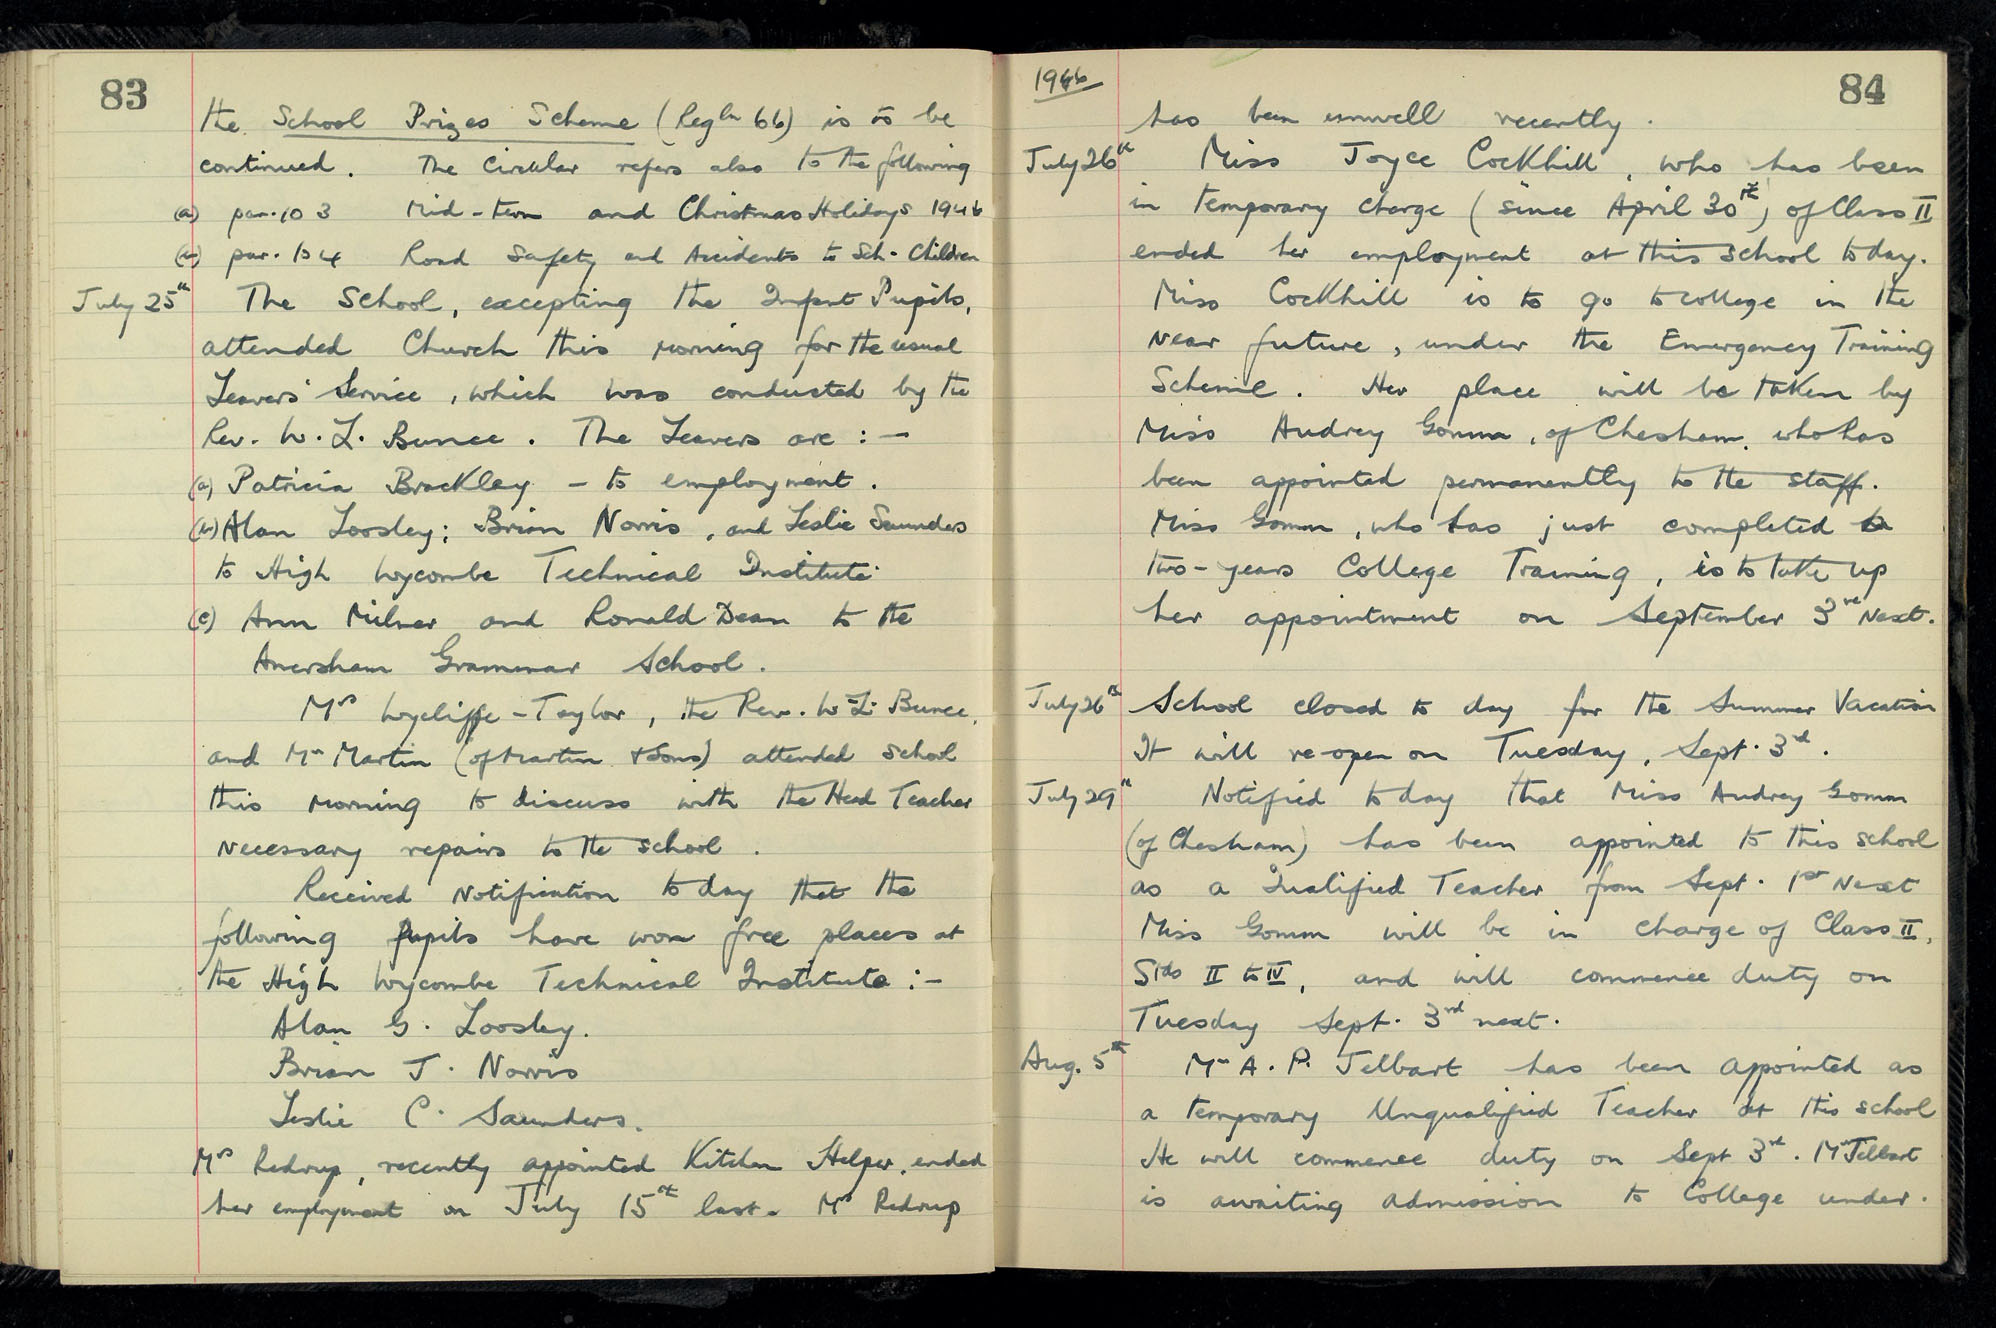 83
the School Prizes Scheme (Regln 66) is to be
continued. The Circular refers also to the following
(a) par. 103 Mid-term and Christmas Holidays 1946
(b) par. 104 Road Safety and Accidents to Sch. Children
July 25th The School, excepting the Infant Pupils,
attended Church this morning for the usual
Leavers' Service, which was conducted by the
Rev. W. L. Bunce. The Leavers are :—
(a) Patricia Brackley - to employment.
(b) Alan Loosley; Brian Norris, and Leslie Saunders
to High Wycombe Technical Institute.
(c) Ann Milner and Ronald Dean to the
Amersham Grammar School.
Mrs Wycliffe-Taylor, the Rev. W. L. Bunce,
and Mr Martin (of Martin & Sons) attended school
this morning to discuss with the Head Teacher
necessary repairs to the school.
Received Notification today that the
following pupils have won free places at
the High Wycombe Technical Institute :-
Alan G. Loosley.
Brian J. Norris
Leslie C. Saunders.
Mrs Redrup, recently appointed Kitchen Helper, ended
her employment on July 15th last. Mrs Redrup
1946
84
has been unwell recently.
July 26th Miss Joyce Cockhill, who has been
in temporary charge (since April 30th) of Class II
ended her employment at this school today.
Miss Cockhill is to go to college in the
near future, under the Emergency Training
Scheme. Her place will be taken by
Miss Audrey Gomm, of Chesham, who has
been appointed permanently to the staff.
Miss Gomm, who has just completed
two-years College Training, is to take up
her appointment on September 3rd next.
July 26th School closed to day for the Summer Vacation
It will re-open on Tuesday, Sept. 3rd.
July 29th Notified today that Miss Audrey Gomm
(of Chesham) has been appointed to this school
as a Qualified Teacher from Sept. 1st next
Miss Gomm will be in charge of Class II,
Stds II to IV, and will commence duty on
Tuesday Sept. 3rd next.
Aug. 5th Mr A. P. Jelbart has been appointed as
a temporary Unqualified Teacher at this school
He will commence duty on Sept 3rd. Mr Jelbart
is awaiting admission to College under.